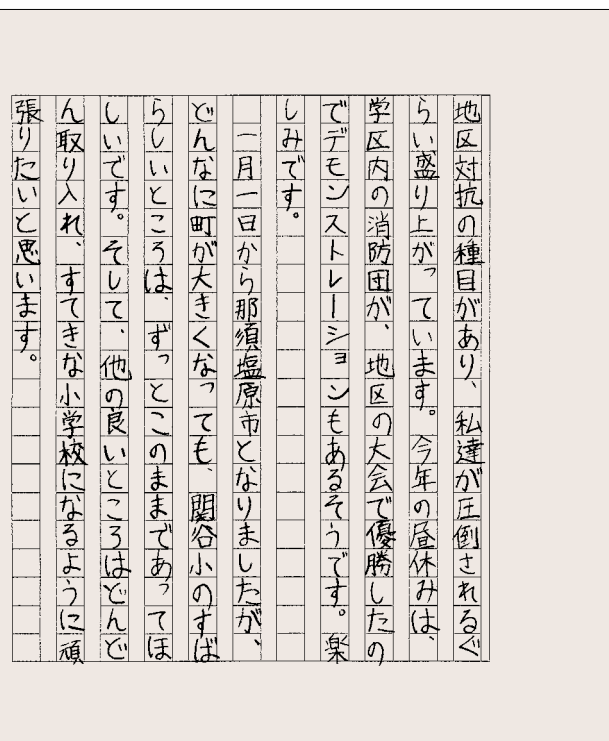 地区対抗の種目があり、私達が圧倒されるぐ
らい盛り上がっています。今年の昼休みは、
学区内の消防団が、地区の大会で優勝したの
でデモンストレーションもあるそうです。楽
しみです。
一月一日から那須塩原市となりましたが、
どんなに町が大きくなっても、関谷小のすば
らしいところは、ずっとこのままであってほ
しいです。そして、他の良いところはどんど
ん取り入れ、すてきな小学校になるように頑
張りたいと思います。